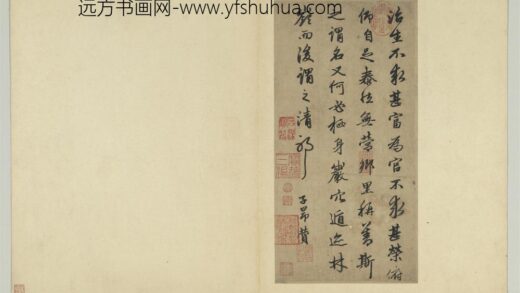 远方书画网--www.yfshuhua.com
治生不求甚富為官不求甚榮俯
仰自足泰無營鄉里稱善斯
之謂名又何必栖身巖穴遁迹林
而後謂之清
子昂贊